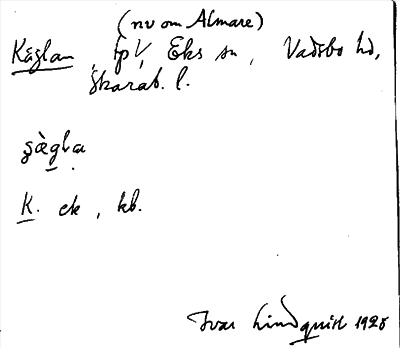 (nv om Almare)
Käglan, tpl, Eks sn, Vadsbo hd,
Skarab. l.
K. ek, kb.
Ivar Lindquist 1925